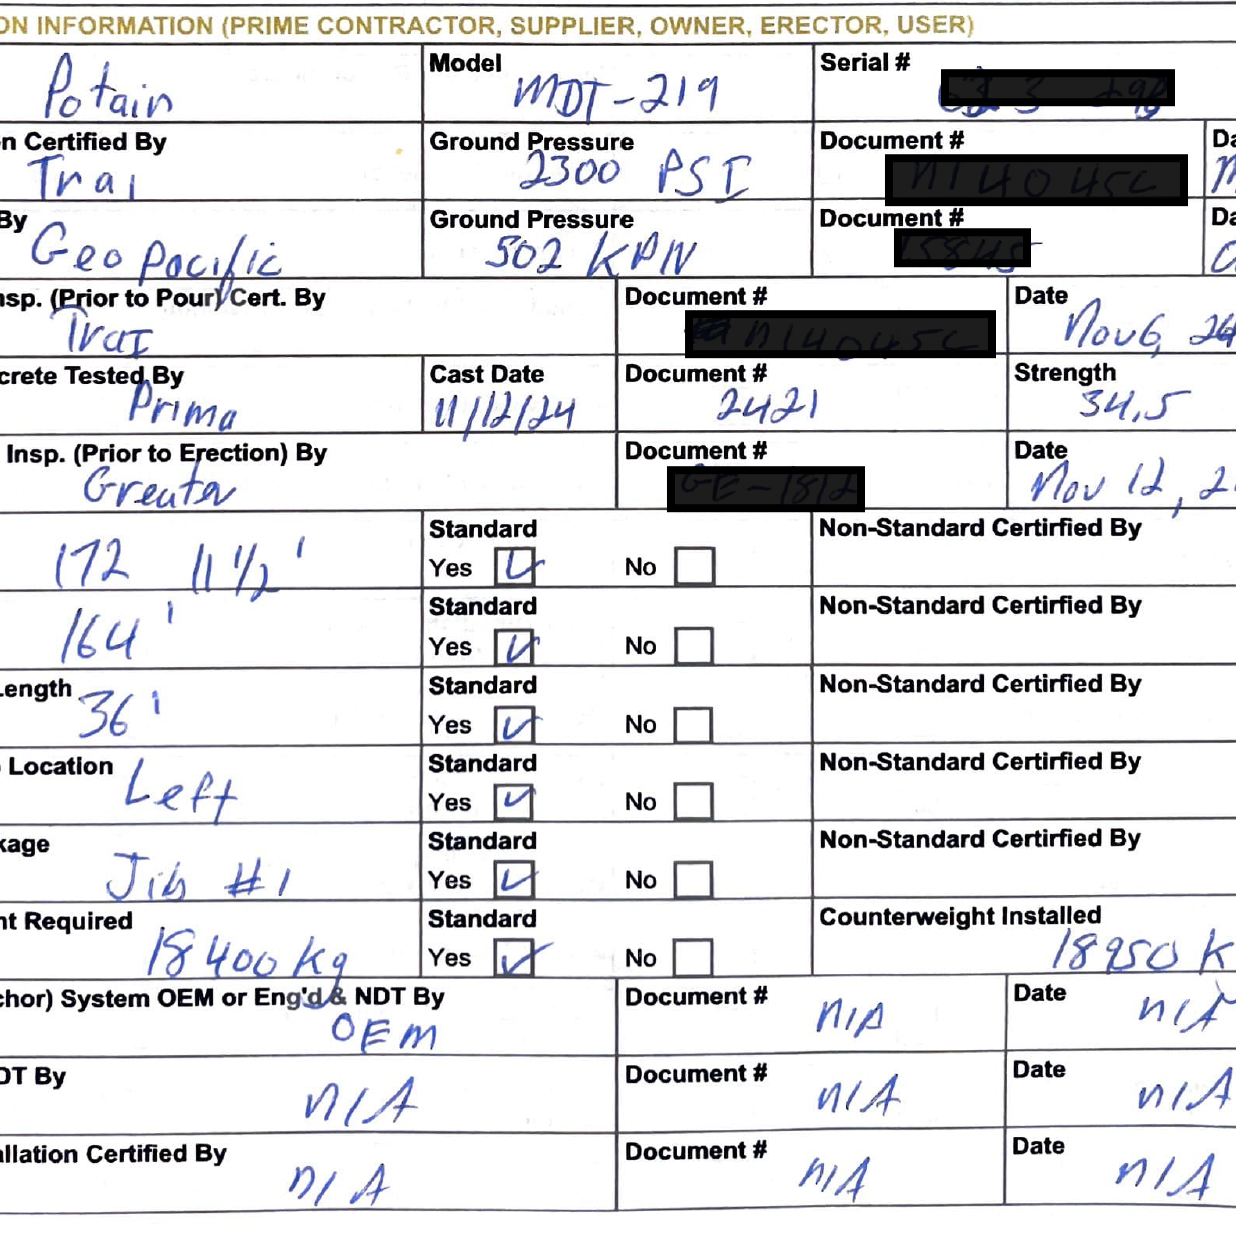 ON INFORMATION (PRIME CONTRACTOR, SUPPLIER, OWNER, ERECTOR, USER)
Potain Model MDT-219 Serial #
n Certified By Trai Ground Pressure 2300 PSI Document # Da
By GeoPacific Ground Pressure 502 KPN Document # Da
nsp. (Prior to Pour) Cert. By Trai Document # Date Nov 6, 24
crete Tested By Prima Cast Date 11/12/24 Document # 2421 Strength 34.5
Insp. (Prior to Erection) By Greater Document # Date Nov 12, 2
172 11 1/2' Standard Yes No Non-Standard Certirfied By
164' Standard Yes No Non-Standard Certirfied By
Length 36' Standard Yes No Non-Standard Certirfied By
Location Left Standard Yes No Non-Standard Certirfied By
kage Jib #1 Standard Yes No Non-Standard Certirfied By
nt Required 18400 Kg Standard Yes No Counterweight Installed 18950 K
chor) System OEM or Eng'd & NDT By OEM Document # n/A Date n/A
DT By n/A Document # n/A Date n/A
allation Certified By n/A Document # n/A Date n/A